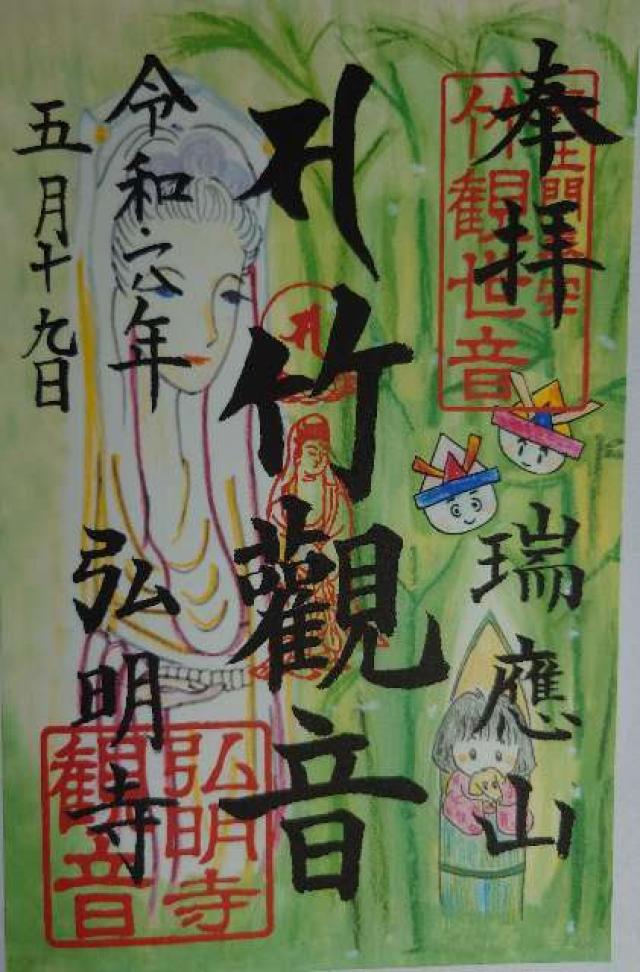 奉拝
瑞應山
竹觀音
令和六年
五月十九日
弘明寺
竹観世音
弘明寺
観音